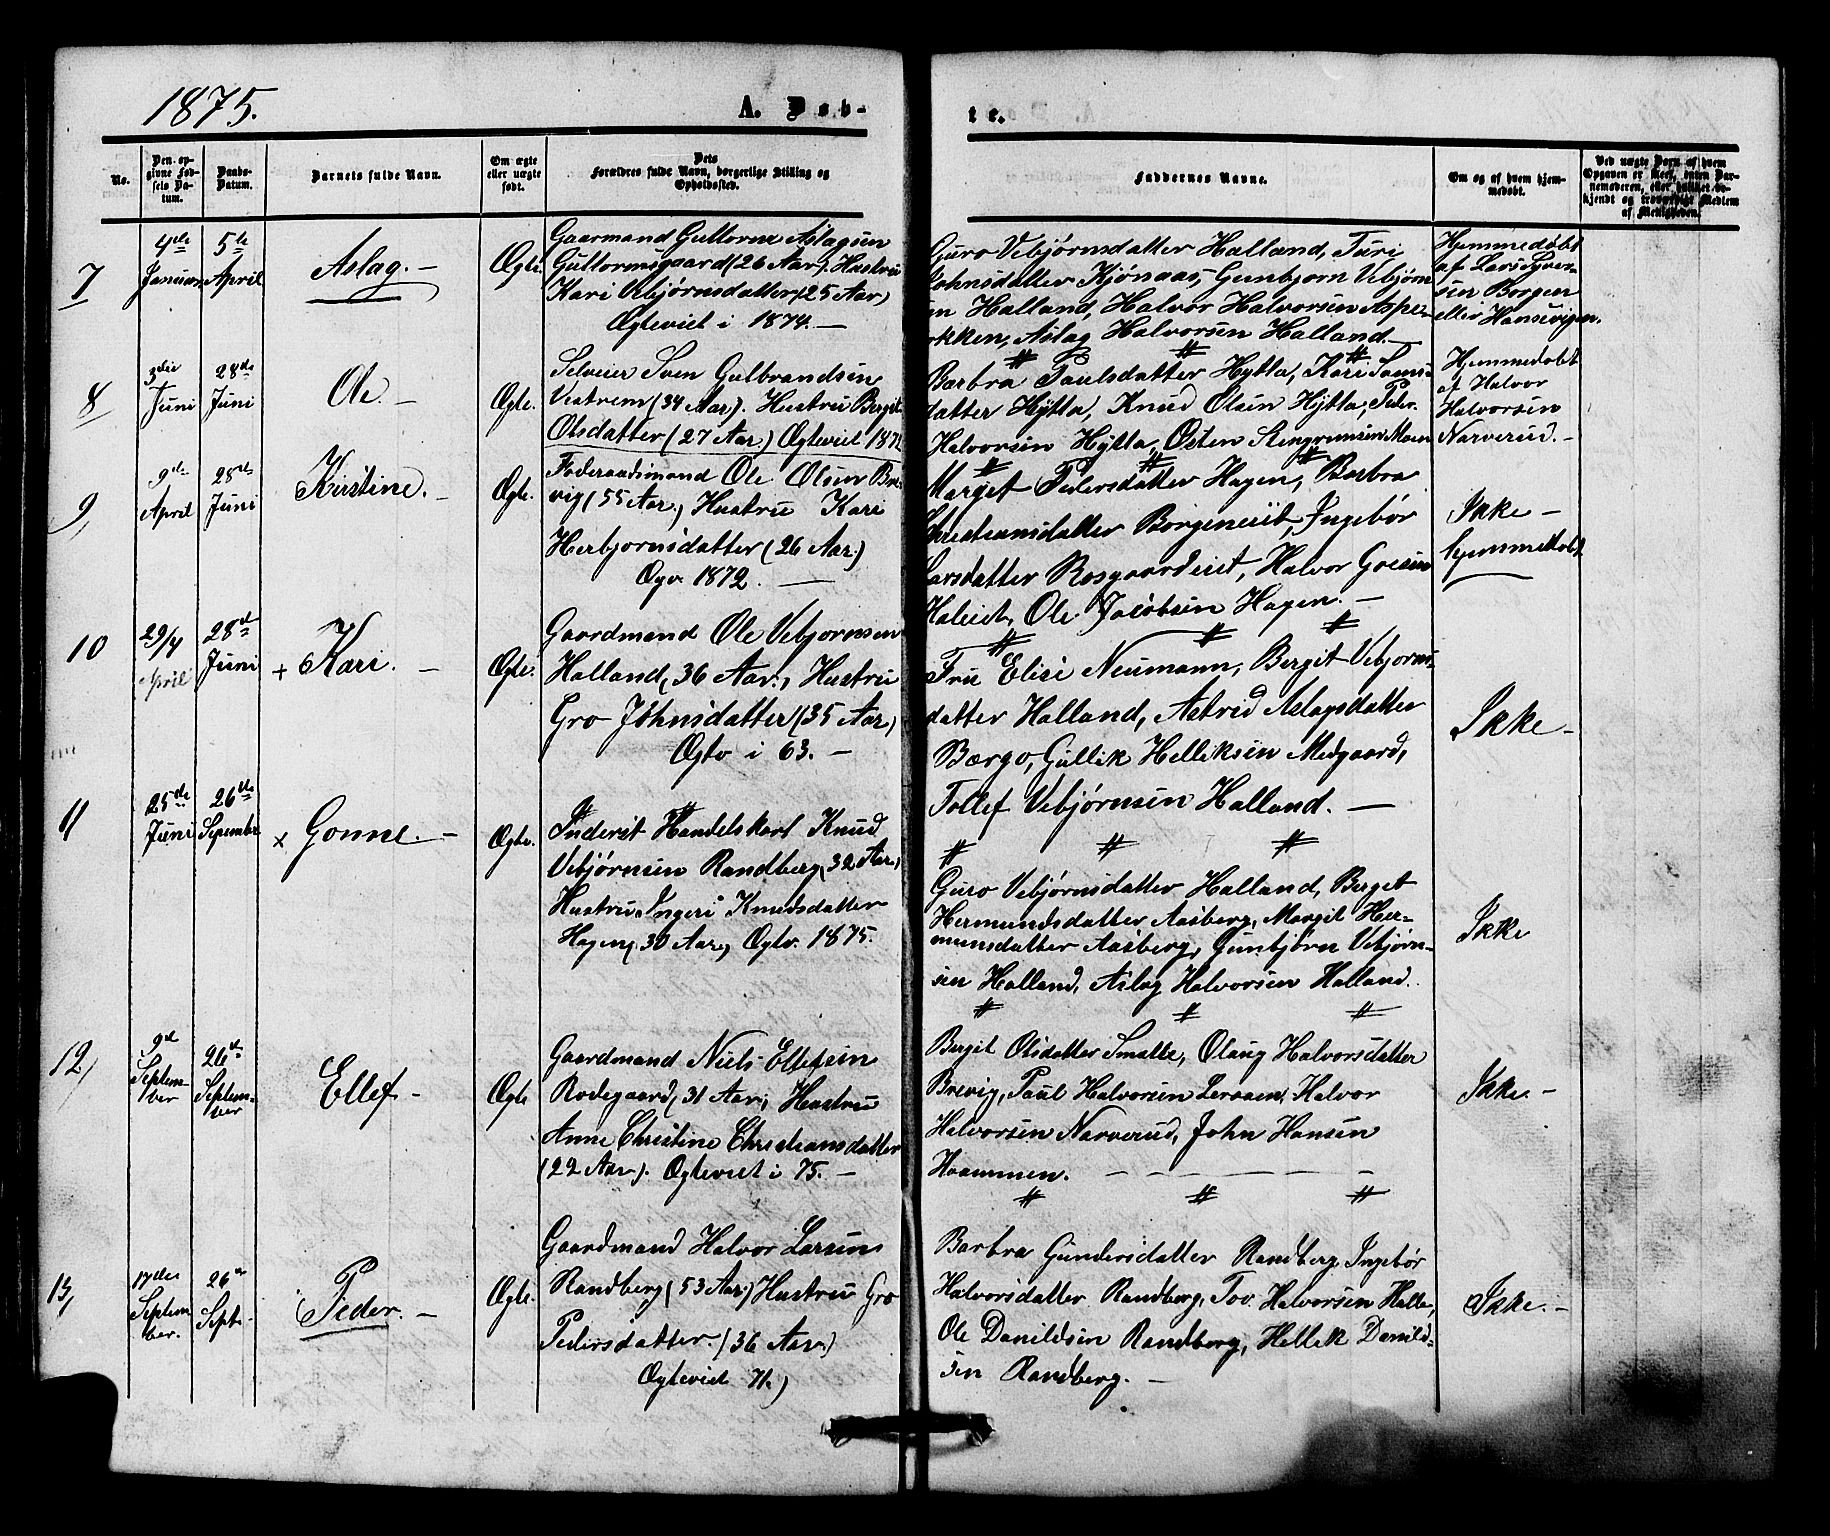 1875.
A. Døb-
te.
No.
Den op-
givne Fød-
sels Da-
tum.
Daabs-
Datum.
Barnets fulde Navn.
Om ægte
eller uægte
født.
Dets
Forældres fulde Navn, borgerlige Stilling og
Opholdssted.
Faddernes Navne.
Om og af hvem hjem-
medøbt.
Ved uægte Børn af hvem
Opgaven er skeet, enten Bar-
nemoderen, eller hvilket be-
kjendt og troværdigt Medlem
af Menigheden.
7
4de
Januar
5te
April
Aslag. -
Ægte.
Gaarmand Guttorm Aslagsen
Guttormsgaard (26 Aar). Hustru
Kari Vebjørnsdatter (25 Aar)
Ægteviet i 1874. -
Guro Vebjørnsdatter Halland, Turi
Johnsdatter Kjønaas, Gunbjørn Vebjørn
en Halland, Halvor Halvorsen Aspe-
okken, Aslag Halvorsen Halland. -
Hjemmedøbt
af Lars Syver-
sen Borgen
eller Hansevigen.
8
3die
Juni
28de
Juni
Ole. -
Ægte.
Selveier Sven Gulbrandsen
Vestrem (34 Aar). Hustru Bergit
Olsdatter (27 Aar.) Ægteviet 1872
Barbra Paulsdatter Hytta, Kari Tams-
datter Hytta, Knud Olsen Hytta, Peder
Halvorsen Hytta, Østen Stengrimsen Moen
Hjemmedøbt
af Halvor
Halvorsen
Narverud. -
9,
9de
April
28de
Juni
Kirstine. -
Ægte.
Føderaadsmand Ole Olsen Bre-
vig (55 Aar.) Hustru Kari
Herbjornsdatter (26 Aar.)
Ægv. 1872. -
Marget Pedersdatter Hagen, Barbra
Christiansdatter Borgeneiet, Ingebør
Larsdatter Rosgaardeiet, Halvor
Haleiet, Ole Jacobsen Hagen. -
Ikke -
hjemmedøbt
10
29/4
April
28de
Juni
+ Kari. -
Ægte.
Gaardmand Ole Vebjornsen
Halland, (36 Aar.), Hustru
Gro Johnsdatter (35 Aar)
Ægtv i 63. -
Fru Elise Neumann, Bergit Vebjorns-
datter Halland, Astrid Aslagsdatter
Bærgo, Gullik Helliksen Medgaard,
Tollef Vebjørnsen Halland. -
Ikke -
11
25de
Juni
26de
Sepember
x Gonne. -
Ægte.
Inderst Handelskarl Knud
Vebjørnsen Randberg, (32 Aar.)
Hustru Ingeri Knudsdatter
Hagen, (30 Aar.) Ægtv. 1875.
Guro Vebjørnsdatter Halland, Berget
Hermundsdatter Aasberg, Margit Her-
munsdatter Aasberg, Gunbjørn Vebjørn-
sen Halland, Aslag Halvorsen Halland.
Ikke
12,
9de
Septem-
ber
26de
Septem-
ber
Ellef -
Ægte
Gaardmand Niels Ellefsen
Rodegaard, (31 Aar), Hustru
Anne Christine Christiansdatter
(22 Aar). Ægteviet i 75. -
Bergit Olsdatter Smatte, Olaug Halvorsdatter
Brevig, Paul Halvorsen Leraaen, Halvor
Halvorsen Narverud, John Hansen
Haammen. - - - -
Ikke. -
13,
17des
Septem
ber.
26de
Sept.
Peder. -
Ægte.
Gaardmand Halvor Larsen
Randberg (53 Aar.) Hustru Gro
Pedersdatter. (36 Aar.)
Ægteviet 71.)
Barbra Gundersdatter Randberg, Ingebør
Halvorsdatter Randberg, Tov. Halvorsen Halle,
Ole Danildsen Randberg, Hellik Danild-
sen Randberg. -
Ikke. -